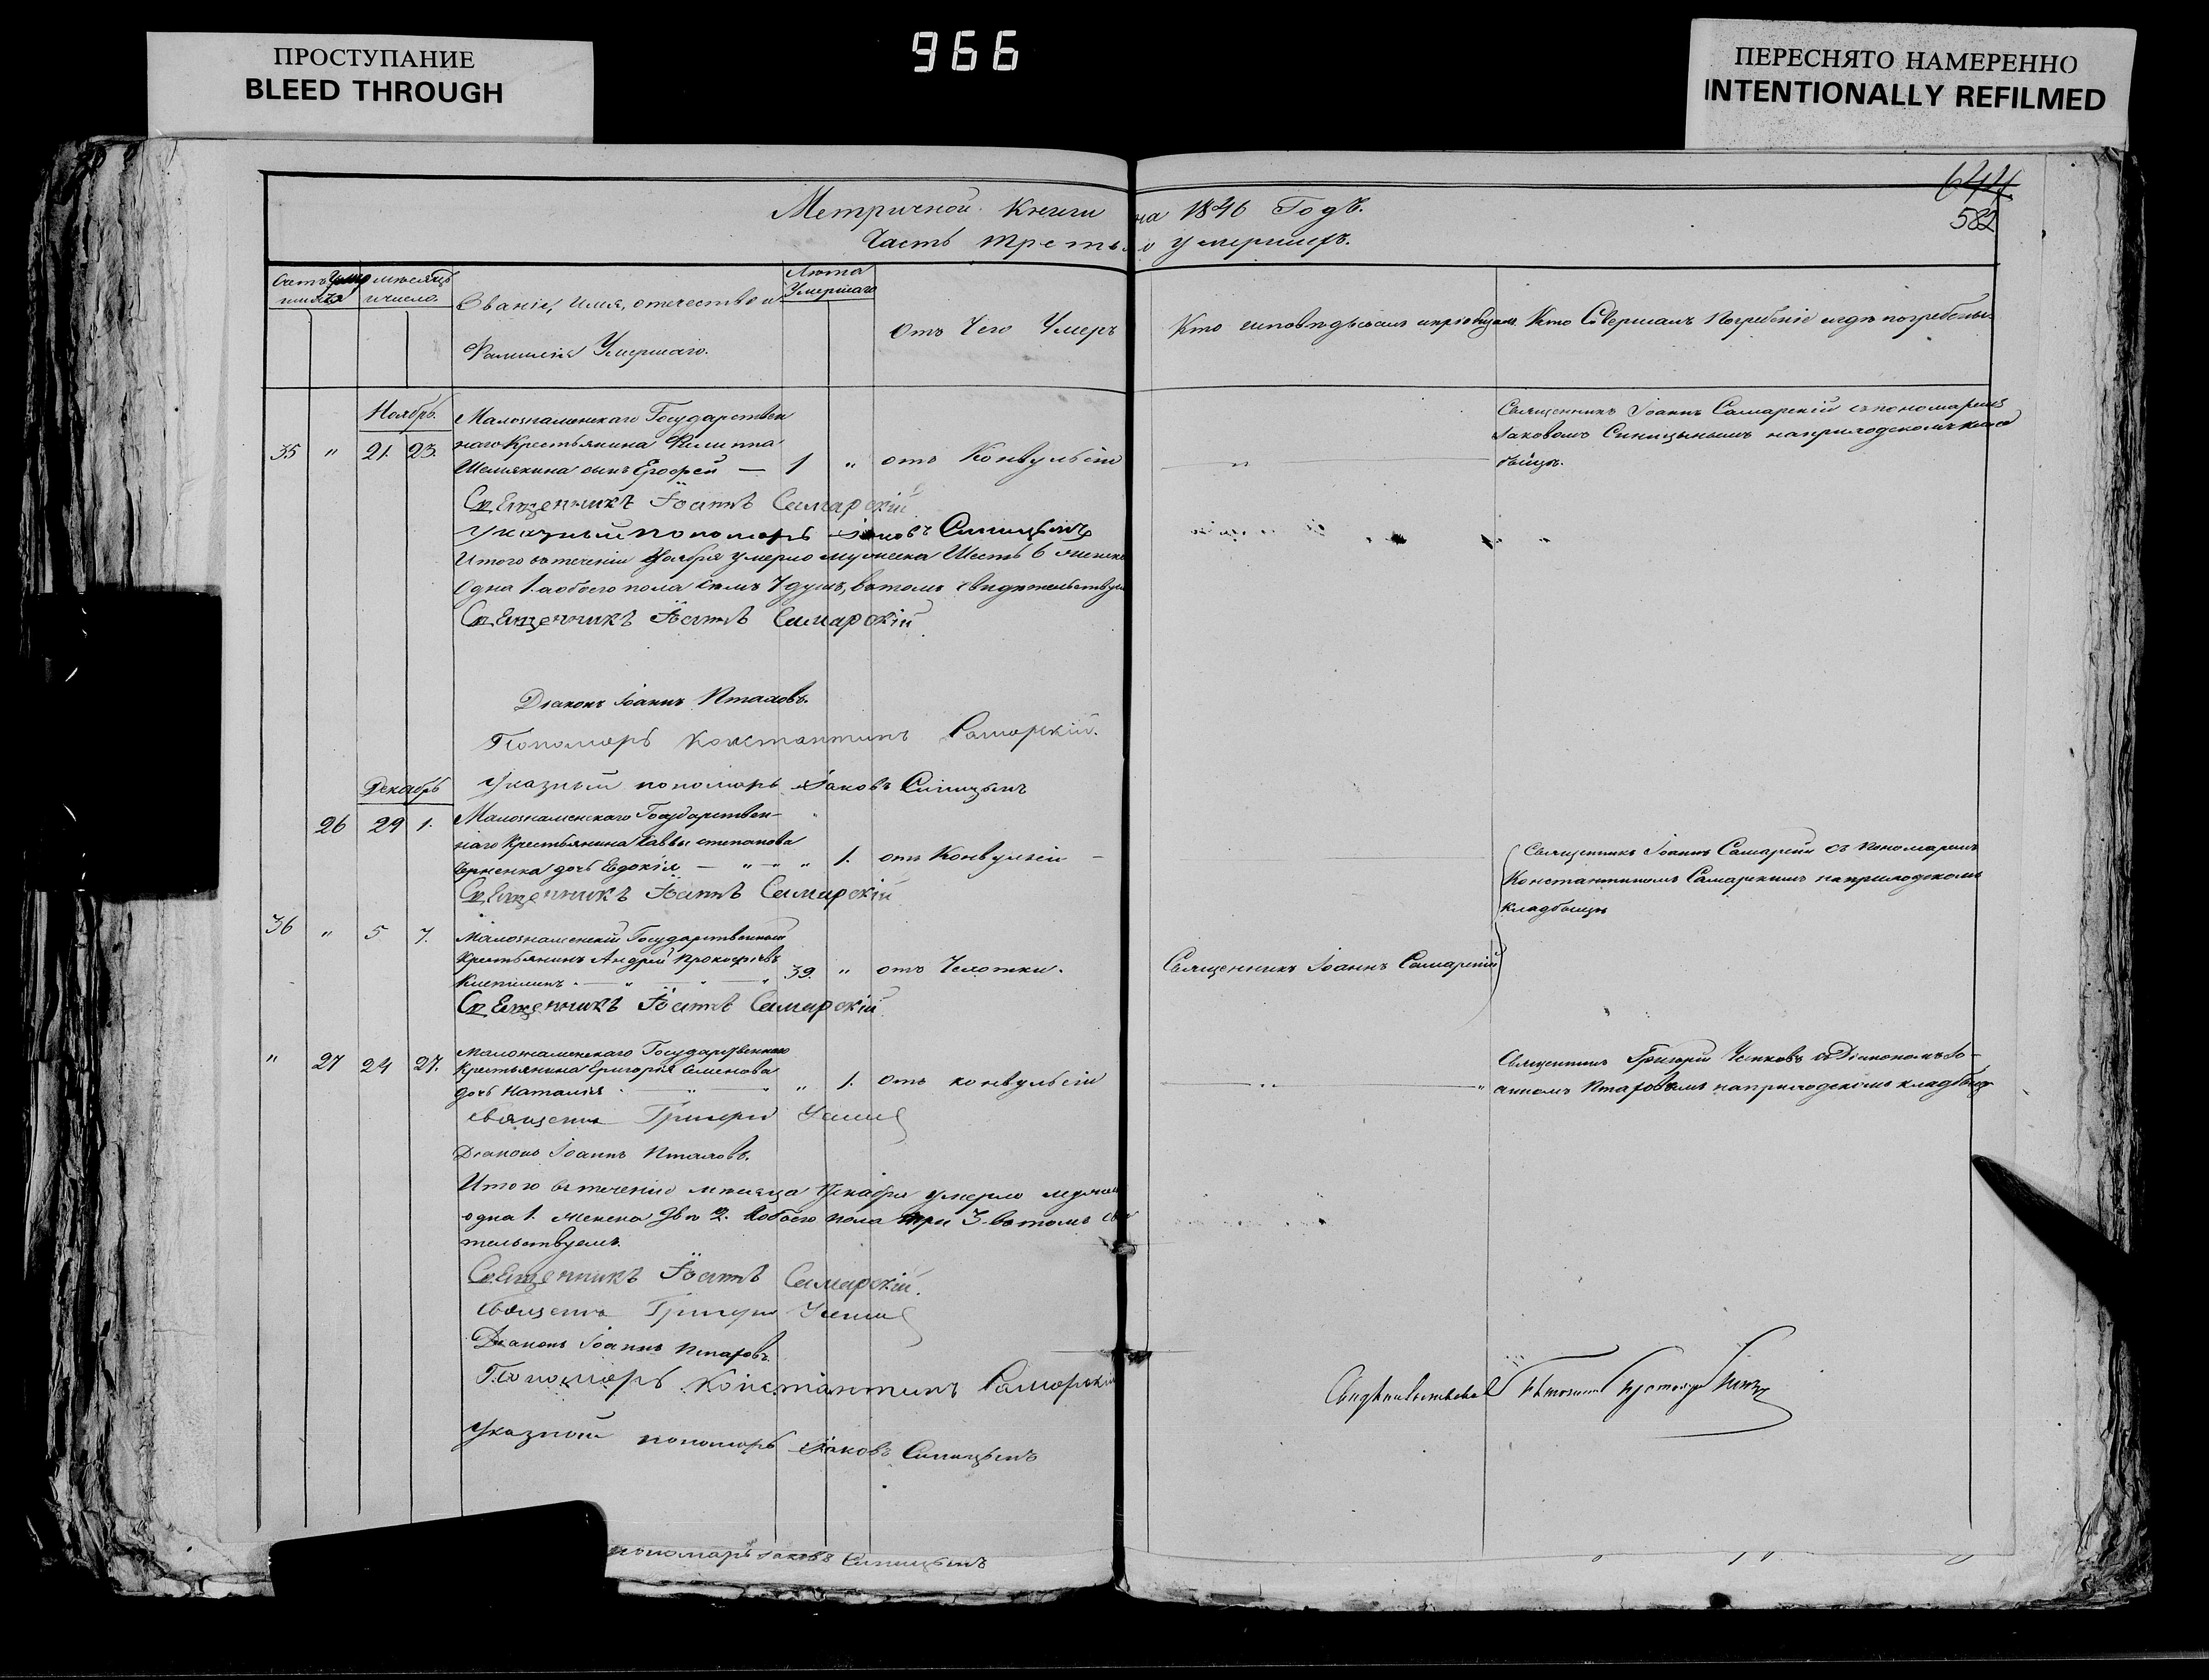 ПРОСТУПАНИЕ
BLEED THROUGH
966
ПЕРЕСНЯТО НАМЕРЕННО
INTENTIONALLY REFILMED
644
582
Метричной Книги на 1846 Годъ.
Часть третья о умершихъ.
Счетъ умершихъ
месяцъ и число.
Званіе, имя, отечество и
Фамилія Умершаго.
Лѣта
Умершаго
Отъ Чего Умеръ
Кто исповѣдывалъ и пріобщалъ
Кто Совершалъ Погребеніе и гдѣ погребены
Ноябрь.
Малознаменскаго Государствен
наго Крестьянина Филиппа
35 " 21. 23. Шемякина сынъ Ерофей — 1 " отъ Конвульсіи — " —
Священникъ Іоаннъ Самарскій съ пономаремъ
Іаковомъ Синицынымъ на приходскомъ клад
бищѣ.
Священникъ Іоаннъ Самарскій
Указный пономарь Іаковъ Синицынъ
Итого въ теченіи Ноября умерло мужеска Шесть 6 женска
одна 1. а обоего пола семь 7 душъ, въ томъ свидѣтельствуем
Священникъ Іоаннъ Самарскій
Діаконъ Іоаннъ Птаховъ.
Пономарь Константинъ Самарскій.
Указный пономарь Іаковъ Синицынъ
Декабрь
26 29 1. Малознаменскаго Государствен-
наго Крестьянина Саввы степанова
дочь Евдокія — " — " " 1. отъ Конвульсіи —
Священникъ Іоаннъ Самарскій съ Пономаремъ
Константиномъ Самарскимъ на приходскомъ
кладбищѣ
Священникъ Іоаннъ Самарскій
36 " 5 7. Малознаменскій Государственный
Крестьянинъ Андрей Прокофіевъ
39. " отъ Чахотки.
Священникъ Іоаннъ Самарскій
Священникъ Іоаннъ Самарскій
" 27 24 27. Малознаменскаго Государственнаго
Крестьянина Григорія Семенова
дочь Наталія " " " 1. отъ конвульсіи — " — "
Священникъ Григорій съ Діакономъ Іо-
анномъ Птаховымъ на приходскомъ кладбищѣ
Священникъ Григорій
Діаконъ Іоаннъ Птаховъ.
Итого въ теченіе месяца Декабря умерло мужеск
одна 1. женска двѣ 2. А обоего пола три 3. въ томъ сви
тельствуемъ.
Священникъ Іоаннъ Самарскій.
Священникъ Григорій
Діаконъ Іоаннъ Птаховъ.
Пономарь Константинъ Самарскій
Указной пономарь Іаковъ Синицынъ
Свидѣтельствовалъ
пономарь Іаковъ Синицынъ